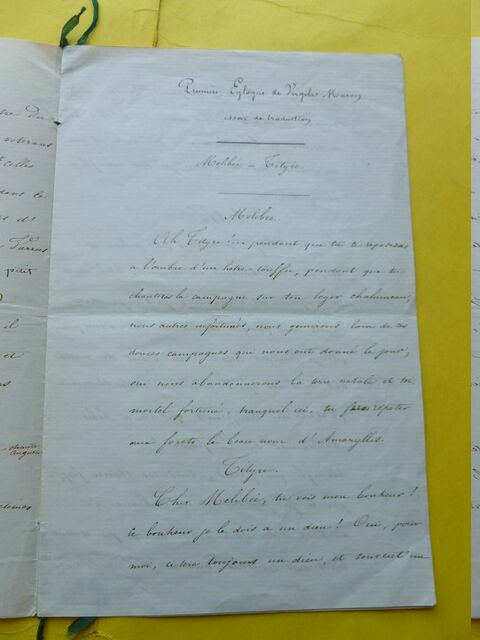 Première Eglogue de Virgile Maron
essai de traduction
Melibée - Tityre.
Melibée.
Ah Tityre ! pendant que tu te reposeras
a l'ombre d'un hêtre touffu, pendant que tu
chanteras la campagne sur ton leger chalumeau,
nous autres infortunés, nous gemirons loin de ces
douces campagnes qui nous ont donné le jour ;
oui nous abandonnerons la terre natale et toi
mortel fortuné, tranquil ici, tu feras répéter
aux forets le beau nom d'Amaryllis.
Tityre.
Cher Melibée, tu vois mon bonheur !
ce bonheur je le dois a un dieu ! Oui, pour
moi, ce sera toujours un dieu, et souvent un
tre du
veterans
celles
dans le
d'
Varus
petit
il
et
chante
auguste